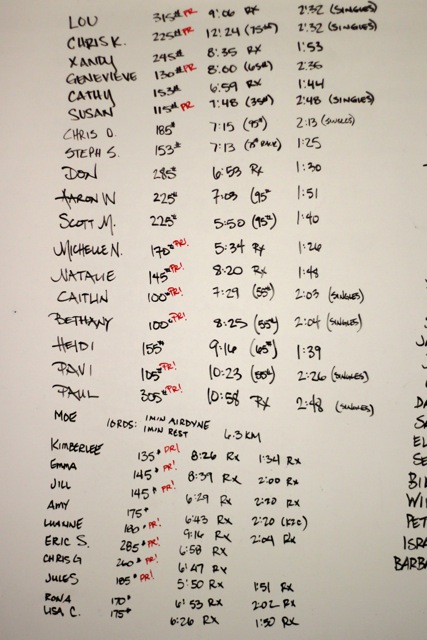 LOU 315# PR 9:06 RX 2:32 (SINGLES)
CHRIS K. 225# PR 12:24 (75#) 2:32 (SINGLES)
XANDY 245# 8:35 RX 1:53
GENEVIEVE 130# PR 8:00 (65#) 2:36
CATHY 153# 6:59 RX 1:44
SUSAN 115# PR 7:48 (35#) 2:48 (SINGLES)
CHRIS O. 185# 7:15 (95#) 2:13 (SINGLES)
STEPH S. 153# 7:13 1:25
DON 285# 6:53 RX 1:30
AARON W 225# 7:03 (95# 1:51
SCOTT M. 225# 5:50 (95#) 1:40
MICHELLE N. 170# PR! 5:34 RX 1:26
NATALIE 145# PR! 8:20 RX 1:48
CAITLIN 100# PR! 7:29 (55#) 2:03 (SINGLES)
BETHANY 100# PR! 8:25 (55#) 2:04 (SINGLES)
HEIDI 155# 9:16 (65#) 1:39
PAVI 105# PR! 10:23 (55#) 2:26 (SINGLES)
PAUL 305# PR! 10:58 RX 2:48 (SINGLES)
MOE 10RDS: 1MIN AIRDYNE
1MIN REST 6.3 KM
KIMBERLEE 135# PR! 8:26 RX 1:34 RX
EMMA 145# PR! 8:39 RX 2:00 RX
JILL 145# PR! 6:29 RX 2:20 RX
AMY 175# 6:43 RX 2:20
LUANNE 180# PR! 9:16 RX 2:04 RX
ERIC S. 285# PR! 6:58 RX
CHRIS G 260# PR! 6:47 RX
JULES 185# PR! 5:50 RX 1:51 RX
RONA 170# 6:53 RX 2:02 RX
LISA C. 175# 6:26 RX 1:30 RX